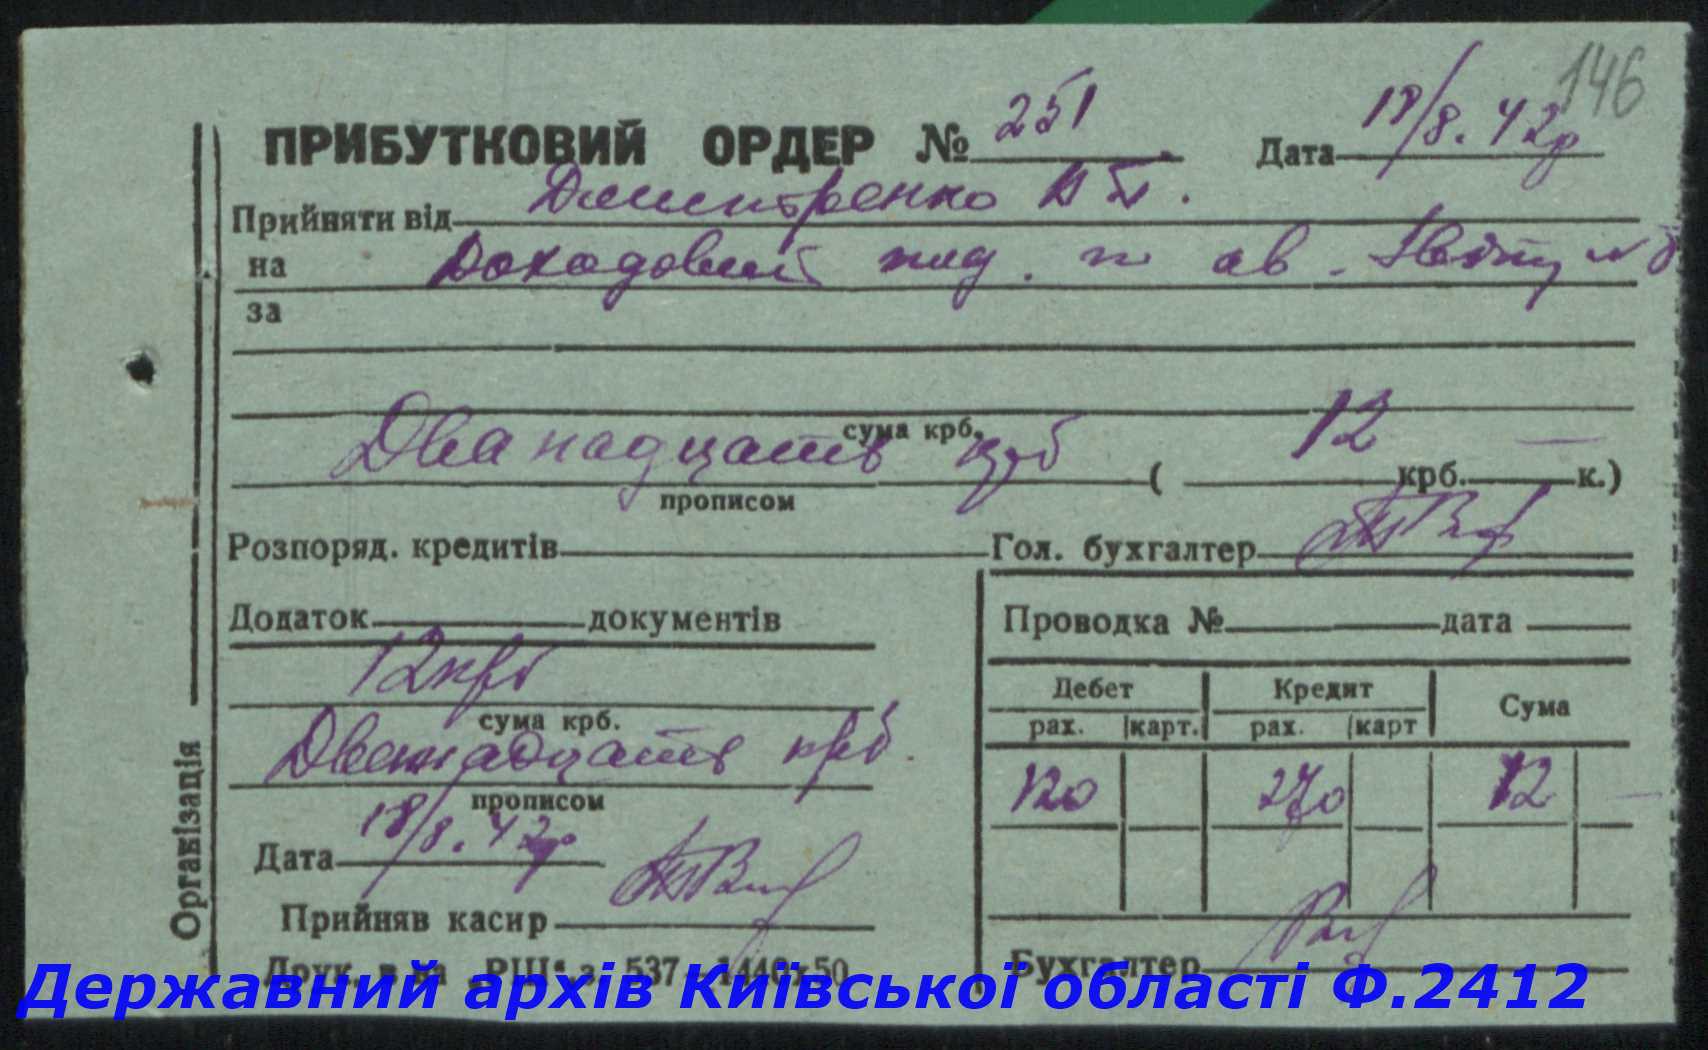 146
ПРИБУТКОВИЙ ОРДЕР № 251 Дата 18/8. 42р
Прийняти від Дмитренко В
на Доходовий под. ав.
за
сума крб.
Дванадцать крб ( 12 крб. — к.)
прописом
Розпоряд. кредитів Гол. бухгалтер
Додаток документів
Проводка № дата
12 крб
сума крб.
Дебет Кредит Сума
рах. карт. рах. карт
Дванадцать крб.
прописом
120 270 12 —
Дата 18/8. 42р
Прийняв касир
Бухгалтер
Організація
Друк. в-ва „РШ“ з. 537—1440х50
Державний архів Київської області Ф.2412